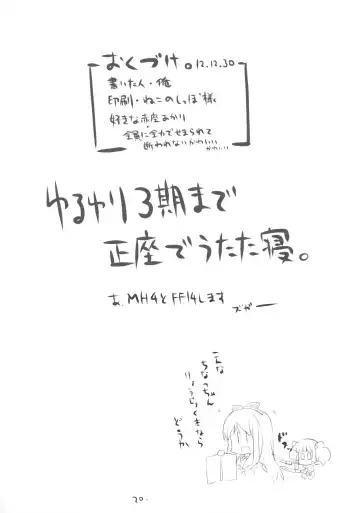 おくづけ。12.12.30
書いた人・俺
印刷・ねこのしっぽ様
好きな赤座あかり
・全員に全力でせまられて
断われないかわいい
かわいい
ゆるゆり3期まで
正座でうたた寝。
あ、MH4とFF14します
ズガー
こんな
ちなつちゃん
どうか
20.